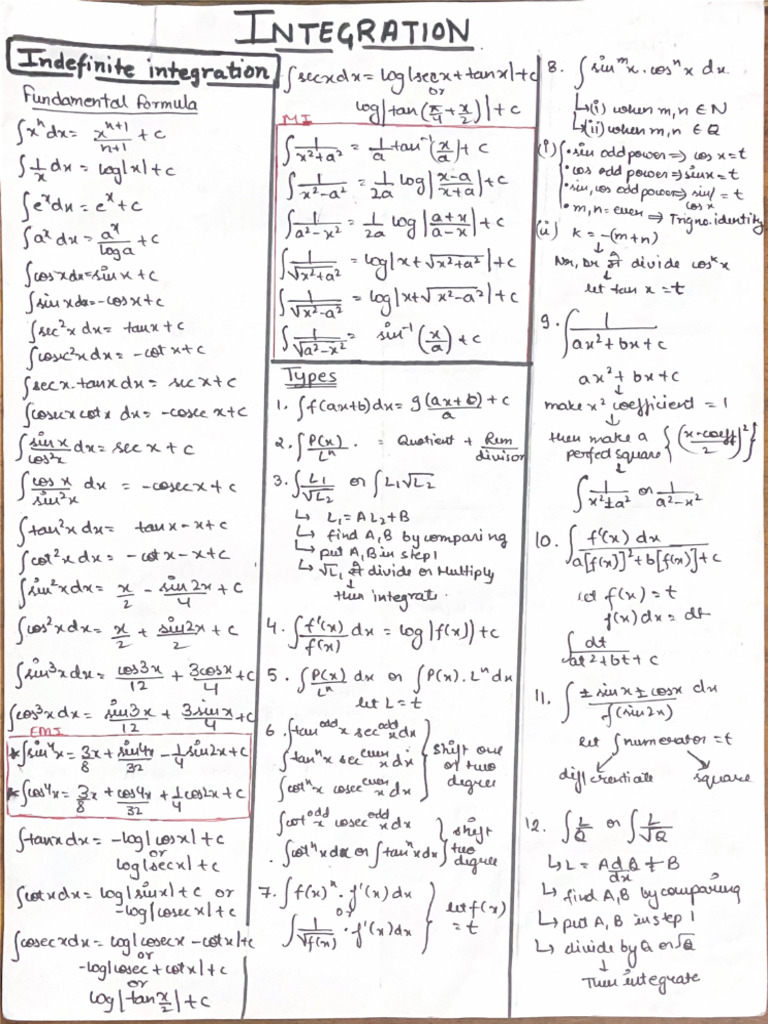 INTEGRATION
Indefinite integration
Fundamental formula
∫xⁿdx = xⁿ⁺¹/n+1 + c
∫1/x dx = log|x| + c
∫eˣdx = eˣ + c
∫aˣ dx = aˣ/log a + c
∫cosxdx = sinx + c
∫sinxdx = -cosx + c
∫sec²x dx = tanx + c
∫cosec²x dx = -cot x + c
∫secx.tanxdx = sec x + c
∫cosecx cotx dx = -cosec x + c
∫sinx/cos²x dx = sec x + c
∫cosx/sin²x dx = -cosecx + c
∫tan²x dx = tanx - x + c
∫cot²x dx = -cotx - x + c
∫sin²x dx = x/2 - sin2x/4 + c
∫cos²x dx = x/2 + sin2x/2 + c
∫sin³x dx = cos3x/12 + 3cosx/4 + c
∫cos³x dx = sin3x/12 + 3sinx/4 + c
EMI
*∫sin⁴x = 3x/8 + sin4x/32 - 1/4 sin2x + c
*∫cos⁴x = 3x/8 + cos4x/32 + 1/4 cos2x + c
∫tanxdx = -log|cosx| + c
or
log|secx| + c
∫cotxdx = log|sinx| + c or
-log|cosecx| + c
∫cosecxdx = log|cosecx - cotx| + c
or
-log|cosec + cotx| + c
or
log|tan x/2| + c
∫secxdx = log|secx + tanx| + c
or
log|tan(π/4 + x/2)| + c
MI
∫1/x²+a² = 1/a tan⁻¹(x/a) + c
∫1/x²-a² = 1/2a log|x-a/x+a| + c
∫1/a²-x² = 1/2a log|a+x/a-x| + c
∫1/√x²+a² = log|x+√x²+a²| + c
∫1/√x²-a² = log|x+√x²-a²| + c
∫1/√a²-x² = sin⁻¹(x/a) + c
Types
1. ∫f(ax+b)dx = g(ax+b)/a + c
2. ∫P(x)/Lⁿ . = Quotient + Rem/divisor
3. ∫L₁/√L₂ or ∫L₁√L₂
↳ L₁ = AL₂+B
↳ find A,B by comparing
↳ put A,B in step 1
↳ √L₁ से divide or Multiply
↓
then integrate.
4. ∫f'(x)/f(x) dx = log|f(x)| + c
5. ∫P(x)/Lⁿ dx or ∫P(x).Lⁿdx
let L = t
6. ∫tan^odd x sec^odd x dx
∫tanⁿx sec^even x dx
∫cotⁿx cosec^even x dx
} shift one or two degree
∫cot^odd x cosec^odd x dx
. ∫cotⁿx dx or ∫tanⁿx dx
} shift two degree
7. ∫f(x)ⁿ.f'(x)dx
or
∫1/√f(x) . f'(x)dx
} let f(x) = t
8. ∫sinᵐx.cosⁿx dx.
↳(i) when m,n ∈ N
↳(ii) when m,n ∈ Q
(i) •sin odd power ⇒ cos x = t
• cos odd power ⇒ sinx = t
• sin, cos odd power ⇒ sin/cosx = t
• m,n = even ⇒ Trigno.identity
(ii) K = -(m+n)
↓
Nr, Dr में divide cosᵏx
↓
let tan x = t
9. ∫1/ax²+bx+c
ax²+bx+c
↓
make x² coefficient = 1
↓
then make a perfect square {(x-coeff/2)²}
↓
∫1/x²±a² or 1/a²-x²
10. ∫f'(x) dx/a[f(x)]²+b[f(x)]+c
let f(x) = t
f'(x)dx = dt
∫dt/at²+bt+c
11. ∫±sinx±cosx dx/f(sin2x)
let ∫numerator = t
differentiate square
12. ∫L/Q or ∫L/√Q
↳ L = A d/dx Q + B
↳ find A,B by comparing
↳ put A, B in step 1
↳ divide by Q or √Q
↓
Then integrate